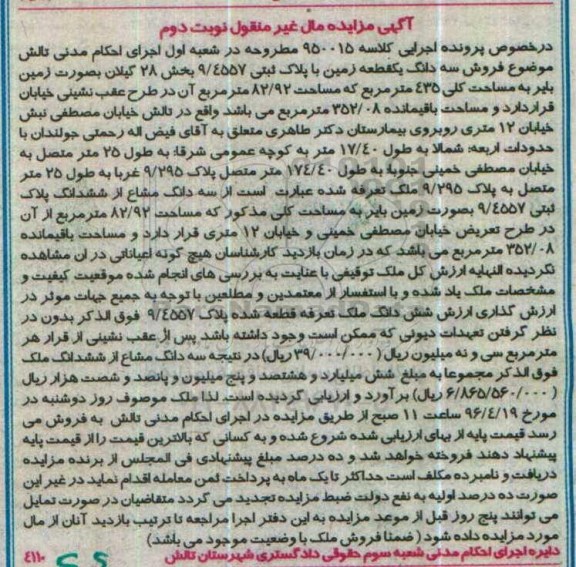 آگهی مزایده مال غیر منقول نوبت دوم
درخصوص پرونده اجرایی کلاسه ۹۵۰۰۱۵ مطروحه در شعبه اول اجرای احکام مدنی تالش
موضوع فروش سه دانگ یکقطعه زمین با پلاک ثبتی ۹/۴۵۵۷ بخش ۲۸ گیلان بصورت زمین
بایر به مساحت کلی ۴۳۵ مترمربع که مساحت ۸۲/۹۲ مترمربع آن در طرح عقب نشینی خیابان
قراردارد و مساحت باقیمانده ۳۵۲/۰۸ مترمربع می باشد واقع در تالش خیابان مصطفی نبش
خیابان ۱۲ متری روبروی بیمارستان دکتر طاهری متعلق به آقای فیض اله رحمتی جولندان با
حدودات اربعه: شمالا به طول ۱۷/۴۰ متر به کوچه عمومی شرقا: به طول ۲۵ متر متصل به
خیابان مصطفی خمینی جنوبا: به طول ۱۷۴/۴۰ متر متصل پلاک ۹/۲۹۵ غربا به طول ۲۵ متر
متصل به پلاک ۹/۲۹۵ ملک تعرفه شده عبارت است از سه دانگ مشاع از ششدانگ پلاک
ثبتی ۹/۴۵۵۷ بصورت زمین بایر به مساحت کلی مذکور که مساحت ۸۲/۹۲ مترمربع از آن
در طرح تعریض خیابان مصطفی خمینی و خیابان ۱۲ متری قرار دارد و مساحت باقیمانده
۳۵۲/۰۸ مترمربع می باشد که در زمان بازدید کارشناسان هیچ گونه اعیاناتی در ان مشاهده
نگردیده النهایه ارزش کل ملک توقیفی با عنایت به بررسی های انجام شده موقعیت کیفیت و
مشخصات ملک یاد شده و با استفسار از معتمدین و مطلعین با توجه به جمیع جهات موثر در
ارزش گذاری ارزش شش دانگ ملک تعرفه قطعه شده پلاک ۹/۴۵۵۷ فوق الذکر بدون در
نظر گرفتن تعهدات دیونی که ممکن است وجود داشته باشد پس از عقب نشینی از قرار هر
مترمربع سی و نه میلیون ریال (۳۹/۰۰۰/۰۰۰ ریال) در نتیجه سه دانگ مشاع از ششدانگ ملک
فوق الذکر مجموعا به مبلغ شش میلیارد و هشتصد و پنج میلیون و پانصد و شصت هزار ریال
(۶/۸۶۵/۵۶۰/۰۰۰ ریال) برآورد و ارزیابی گردیده است. لذا ملک موصوف روز دوشنبه در
مورخ ۹۶/۴/۱۹ ساعت ۱۱ صبح از طریق مزایده در اجرای احکام مدنی تالش به فروش می
رسد قیمت پایه از بهای ارزیابی شده شروع شده و به کسانی که بالاترین قیمت را از قیمت پایه
پیشنهاد دهند فروخته خواهد شد و ده درصد مبلغ پیشنهادی فی المجلس از برنده مزایده
دریافت و نامبرده مکلف است حداکثر تا یک ماه به پرداخت ثمن معامله اقدام نماید در غیر این
صورت ده درصد اولیه به نفع دولت ضبط مزایده تجدید می گردد متقاضیان در صورت تمایل
می توانند پنج روز قبل از موعد مزایده به این دفتر اجرا مراجعه تا ترتیب بازدید آنان از مال
مورد مزایده داده شود (ضمنا فروش ملک با وضعیت موجود می باشد)
دایره اجرای احکام مدنی شعبه سوم حقوقی دادگستری شهرستان تالش
۴۱۱۰